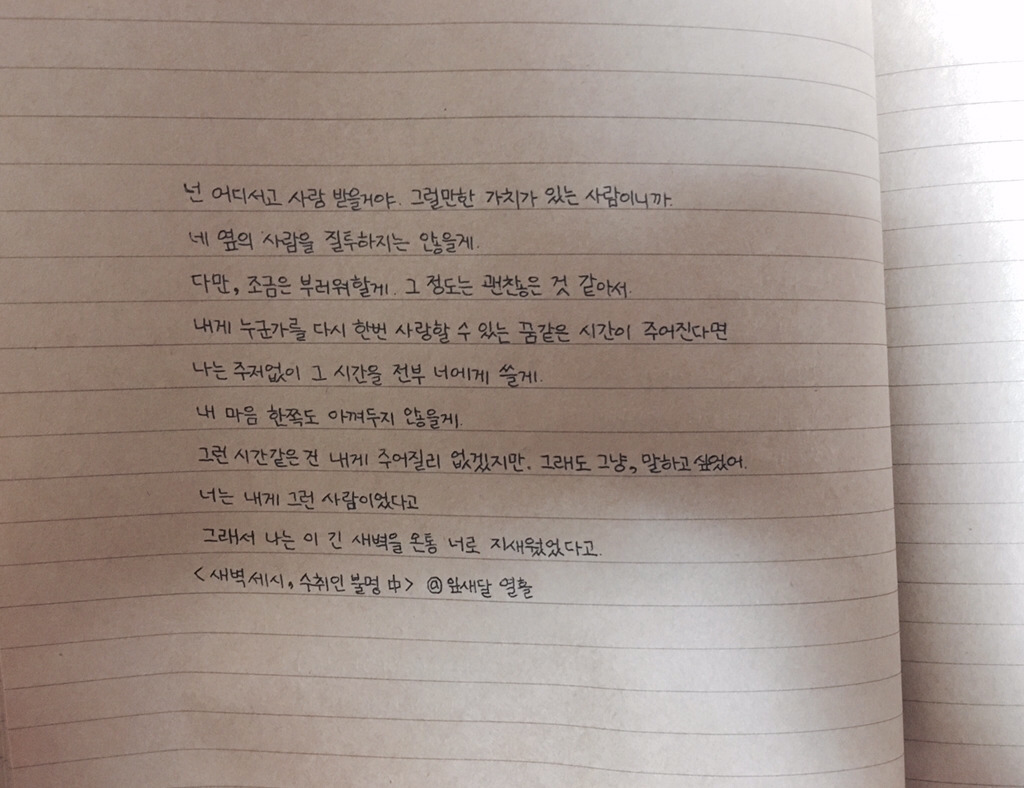 넌 어디서고 사랑 받을거야. 그럴만한 가치가 있는 사람이니까.
네 옆의 사람을 질투하지는 않을게.
다만, 조금은 부러워할게. 그 정도는 괜찮은 것 같아서.
내게 누군가를 다시 한번 사랑할 수 있는 꿈같은 시간이 주어진다면
나는 주저없이 그 시간을 전부 너에게 쓸게.
내 마음 한쪽도 아껴두지 않을게.
그런 시간같은건 내게 주어질리 없겠지만. 그래도 그냥, 말하고 싶었어.
너는 내게 그런 사람이었다고
그래서 나는 이 긴 새벽을 온통 너로 지새웠었다고.
<새벽 세시, 수취인 불명 中> @잎새달 열활